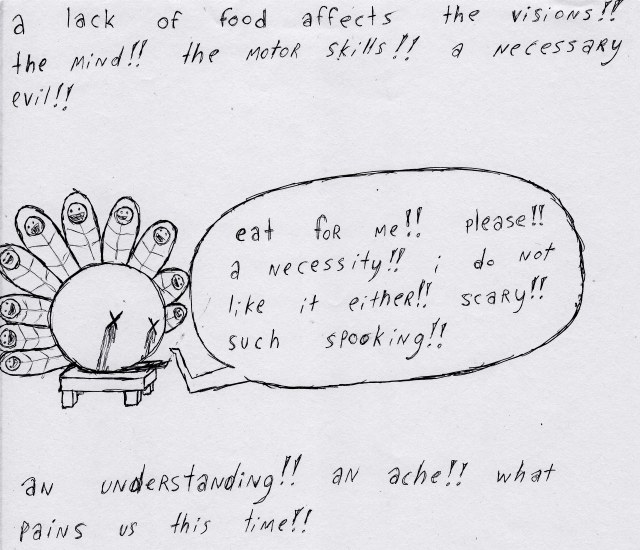 a lack of food affects the visions!!
the mind!! the motor skills!! a necessary
evil!!
eat for me!! please!!
a necessity!! i do not
like it either!! scary!!
such spooking!!
an understanding!! an ache!! what
pains us this time!!